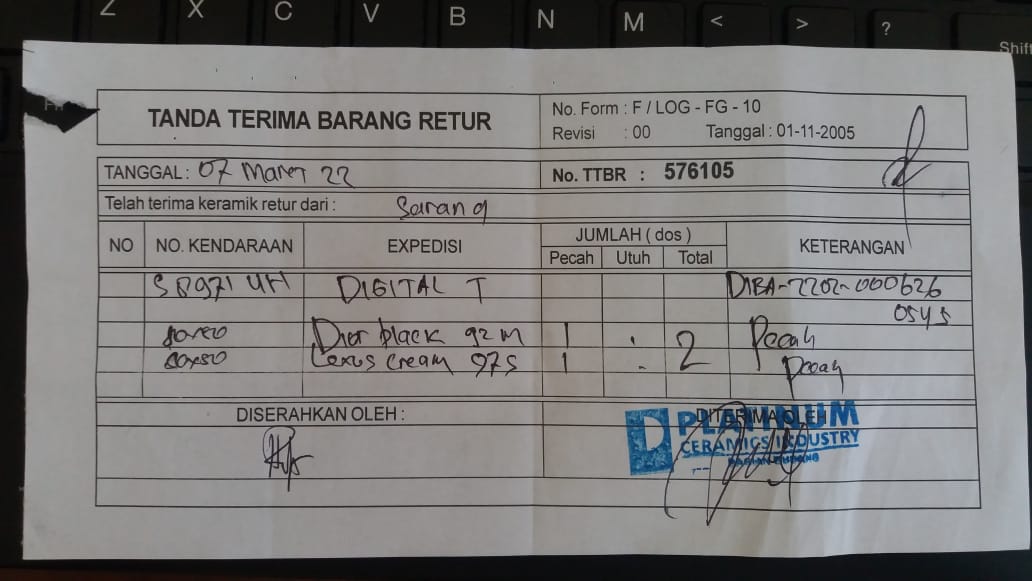 Z X C V B N M < > ?
Shift
TANDA TERIMA BARANG RETUR
No. Form : F / LOG - FG - 10
Revisi : 00 Tanggal : 01-11-2005
TANGGAL : 07 Maret 22
No. TTBR : 576105
Telah terima keramik retur dari : Sarang
NO NO. KENDARAAN EXPEDISI JUMLAH ( dos ) KETERANGAN
Pecah Utuh Total
DIGITAL T DIBA-2202-000626
0545
Dior black 92 M 1 2 Pecah
80x80 Lexus cream 97 S 1 - Pecah
DISERAHKAN OLEH : DITERIMA OLEH
PLATINUM
CERAMICS INDUSTRY